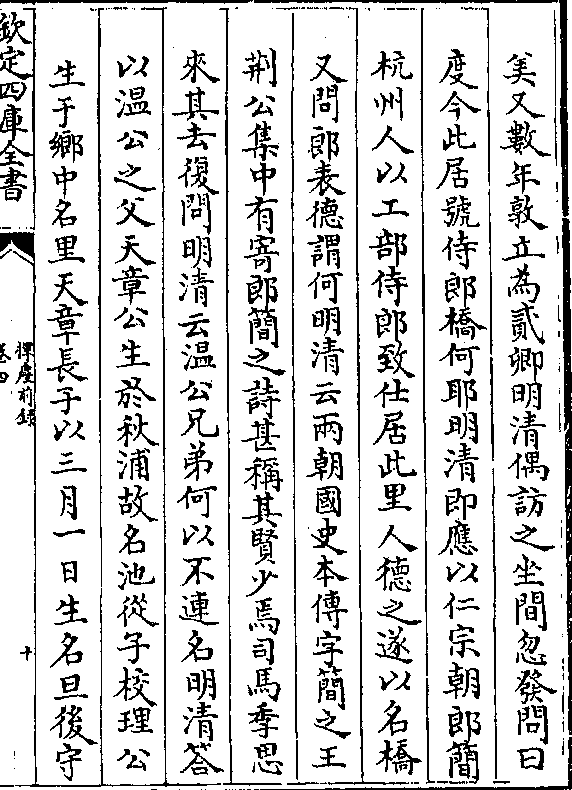 矣又數年敦立為貳卿明清偶訪之坐間忽發問曰
度今此居號侍郎橋何耶明清即應以仁宗朝郎簡
杭州人以工部侍郎致仕居此里人德之遂以名橋
又問郎表德謂何明清云兩朝國史本傳字簡之王
荆公集中有寄郎簡之詩甚稱其賢少焉司馬季思
來其去復問明清云温公兄弟何以不連名明清答
以温公之父天章公生於秋浦故名池從子校理公
生于鄉中名里天章長子以三月一日生名旦後守
欽定四庫全書
揮麈前錄
卷四
十